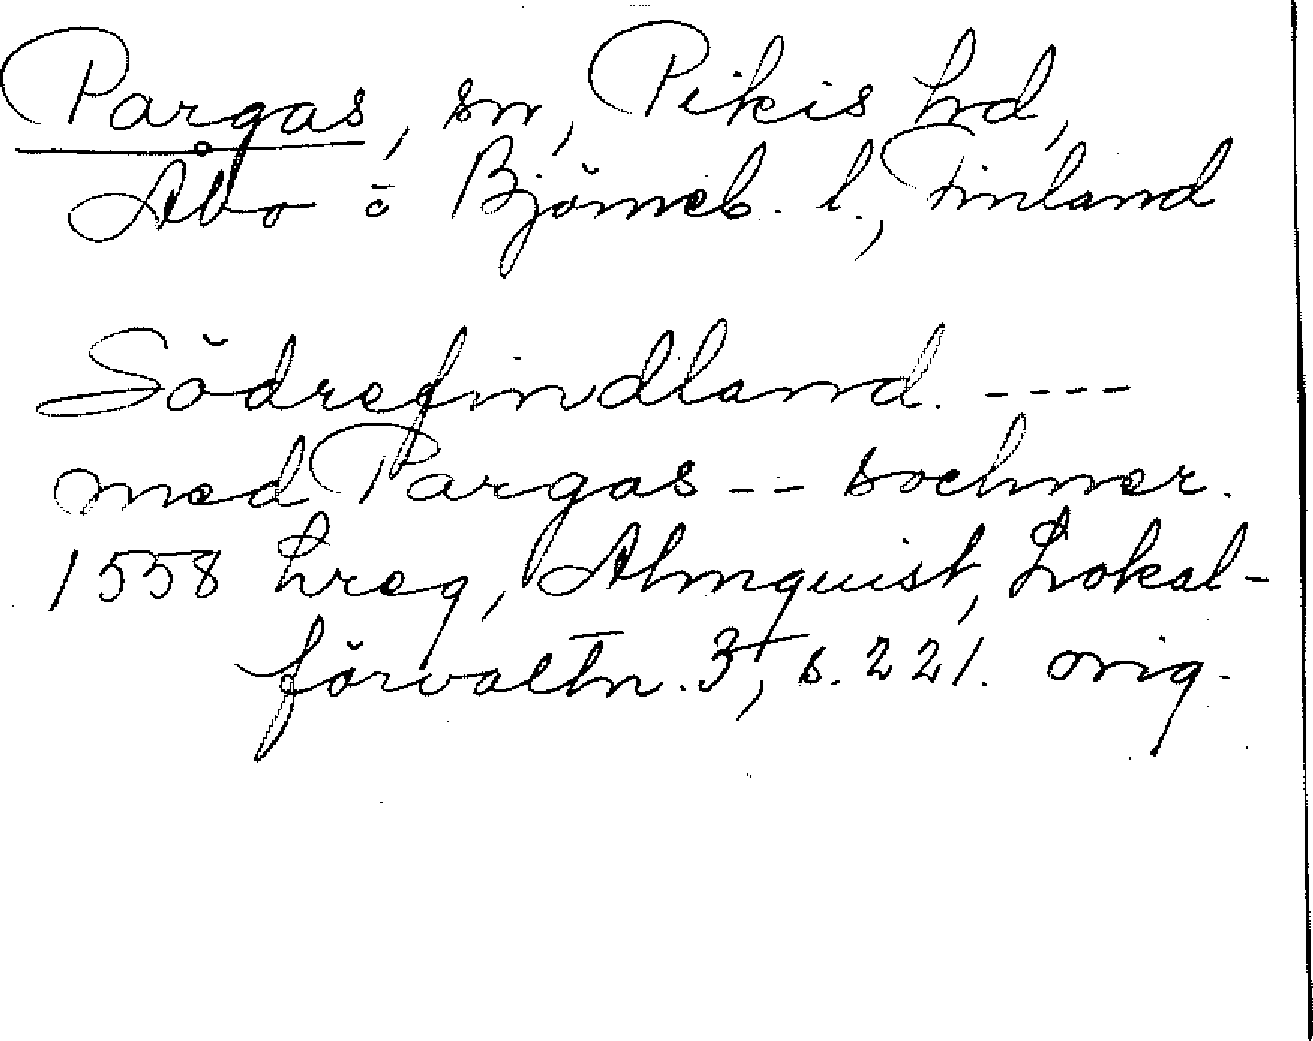 Pargas, sn, Pikis hd,
Åbo o Björneb. l., Finland
Södrefindland. ----
med Pargas -- sochner.
1558 hreg, Almquist, Lokal-
förvaltn. 3, s. 221. orig.